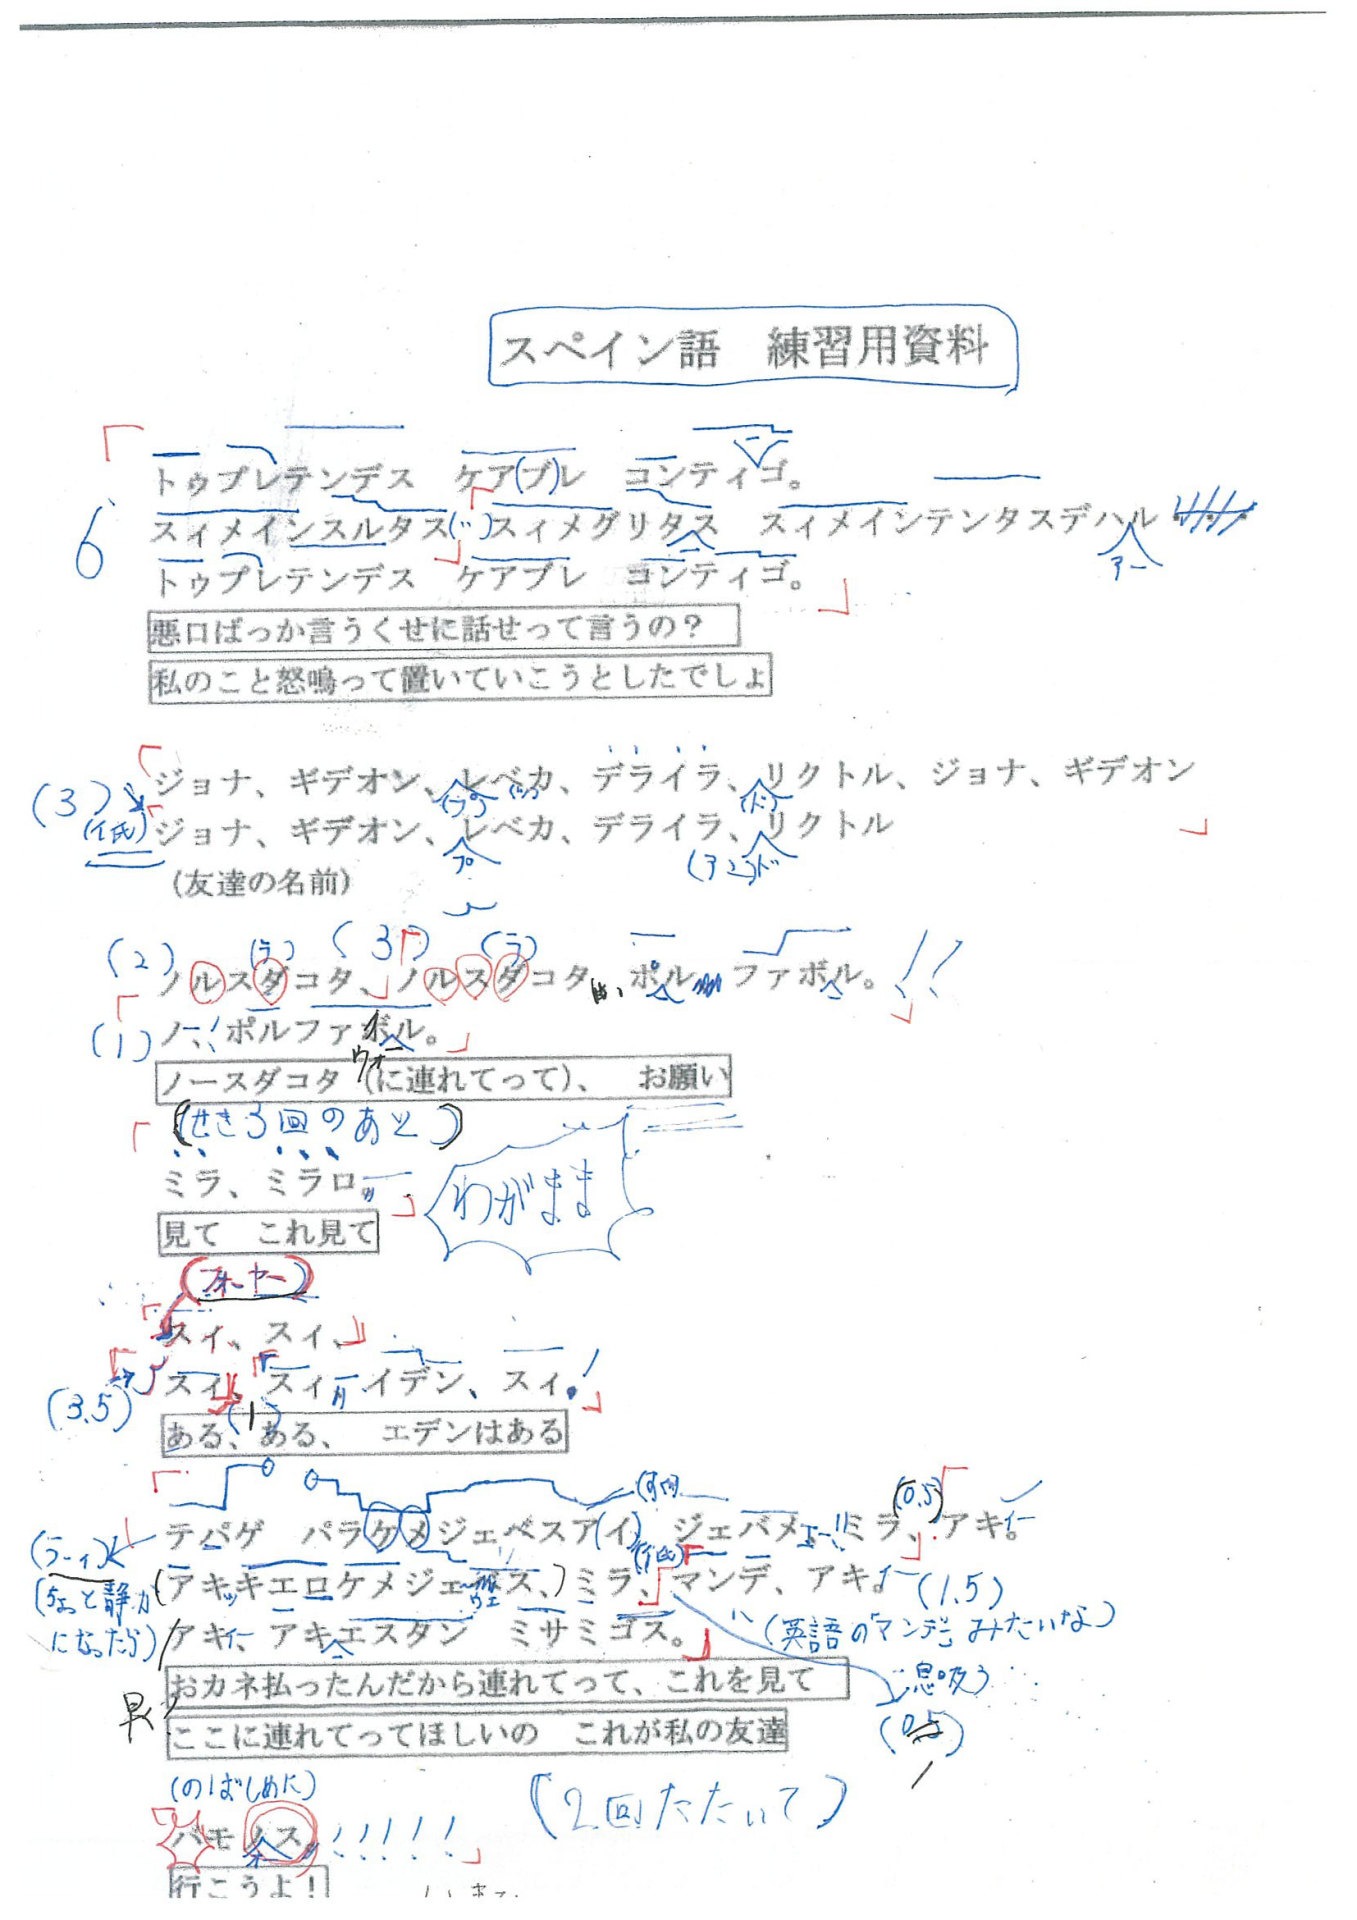 スペイン語　練習用資料
トゥプレテンデス　ケア(ブ)レ　コンティゴ。
6
スィメインスルタス(ッ)スィメグリタス　スィメインテンタスデハル
アー
トゥプレテンデス　ケアブレ　コンティゴ。
悪口ばっか言うくせに話せって言うの？
私のこと怒鳴って置いていこうとしたでしょ
(3)
ジョナ、ギデオン、レベカ、デライラ、リクトル、ジョナ、ギデオン
(プ)
(低)
ジョナ、ギデオン、レベカ、デライラ、リクトル
プ
(友達の名前)
(2) (ラ) (3) (ラ)
ノルスダコタ、ノルスダコタ、ポル　ファボル。!!
(1)
ノー!ポルファボル。
ウォー
ノースダコタ（に連れてって）、　お願い
(せき3回のあと)
ミラ、ミラロ。
わがまま
見て　これ見て
(フォーヤー)
スィ、スィ、
(3.5)
スィ、スィ イデン、スィ。!
(1)
ある、ある、　エデンはある
(0.5)
テパゲ　パラケメジェベスア(イ) ジェバメ ミラ、アキ。
イー
(ちょっと静かになったら)
(アキッキエロケメジェベス、)ミラ、マンデ、アキ。
(1.5)
アキィ、アキエスタン　ミサミゴス。
(英語の「マンデ」みたいな)
おカネ払ったんだから連れてって、これを見て
息吸う
早く
ここに連れてってほしいの　これが私の友達
(0.5)
(のばしめに)
(2回たたいて)
バモノス。!!!!!
オー
行こうよ！